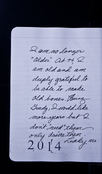 I am no longer
"older". At 74 I
am old and am
deeply grateful to
be able to make
old bones. Honey
Buddy, I would like
more years but I
don't need them,
only desire them.
Lucky me
2014